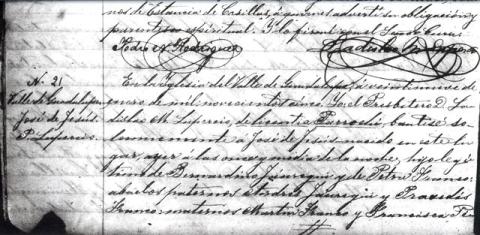 nos de Estancia de Casillas, á quienes advertí su obligación y
parentesco espiritual. Y lo firmé con el Señor Cura.
Pedro A. Rodríguez
N. 21
Valle de Guadalupe
José de Jesús
P. Lupercio.
En la Iglesia del Valle de Guadalupe, á veintinueve de
enero de mil novecientos cinco. Yo el Presbítero D. La
dislao M. Lupercio, de licentia Parrochi, bauticé so
lemnemente á José de Jesús nacido en este lu
gar, ayer á las once y media de la noche, hijo legí
timo de Bernardino Jáuregui y de Petra Franco:
abuelos paternos Jáuregui y Praxedis
Franco: maternos Martín Franco y Francisca